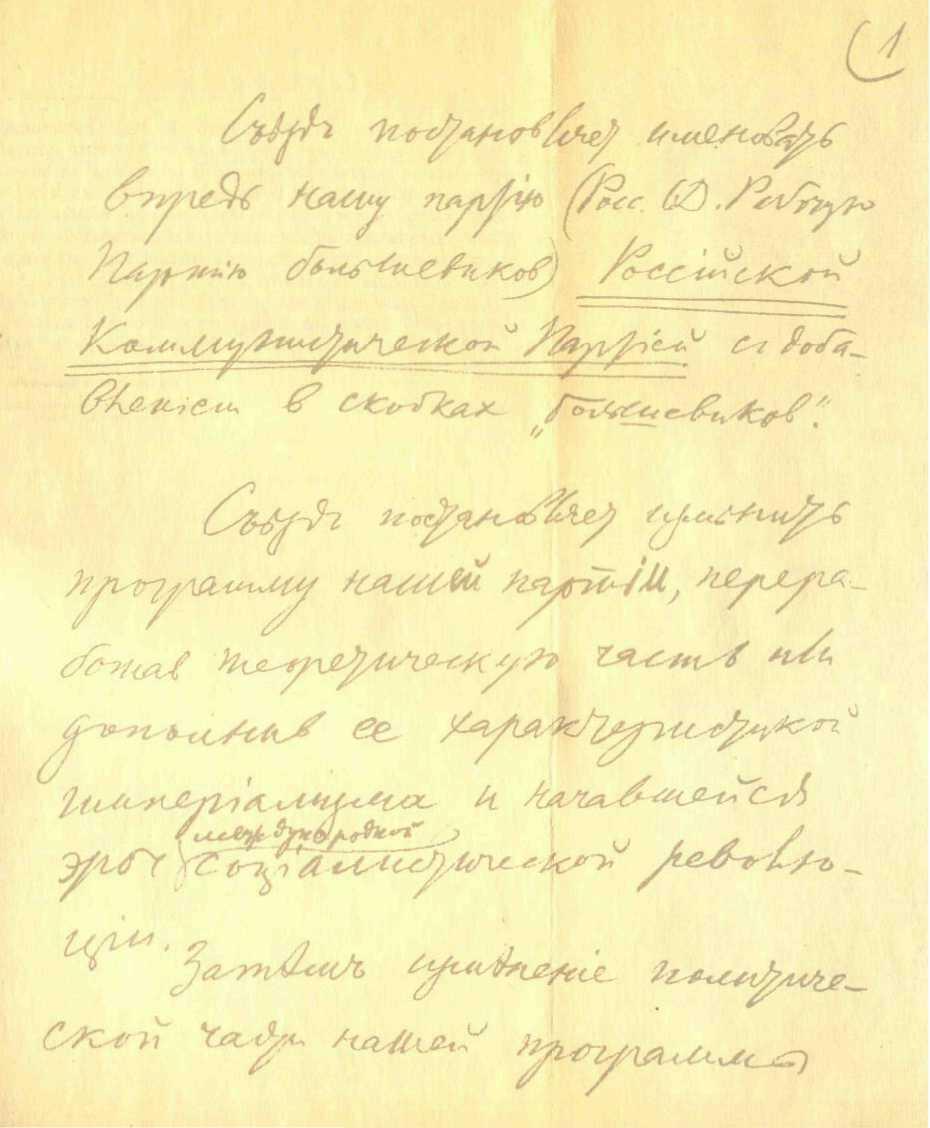 1
Съѣздъ постановляет именовать
впредь нашу партію (Росс. СД. Рабочую
Партию большевиков) Россійской
Коммунистической Партіей съ доба-
вленіем в скобках „большевиков".
Съѣздъ постановляет измѣнить
программу нашей партіи, перера-
ботав теоретическую часть или
дополнив ее характеристикой
империализма и начавшейся
международной
эры социалистической револю-
ціи.
Затѣмъ измѣненіе политиче-
ской части нашей программы